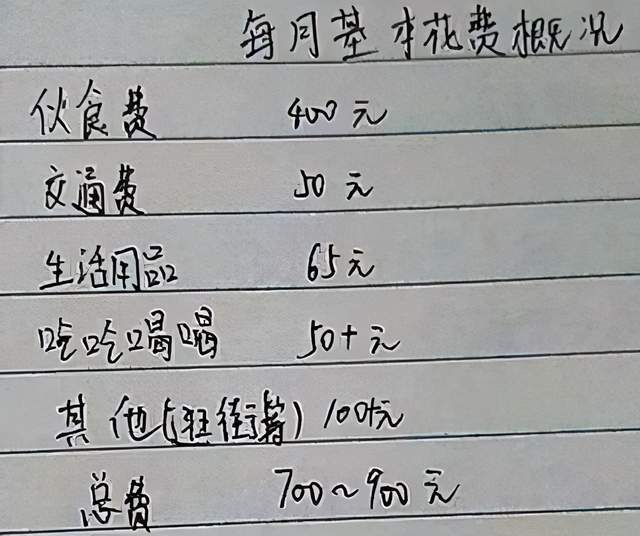 每月基本花费概况
伙食费 400元
交通费 50元
生活用品 65元
吃吃喝喝 50+元
其他(逛街等) 100+元
总费 700~900元